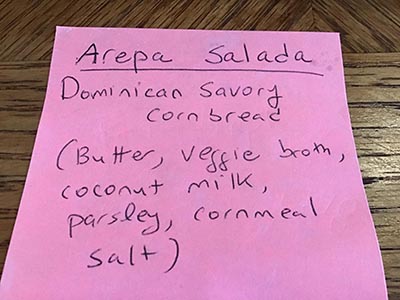 Arepa Salada
Dominican Savory
Cornbread
(Butter, veggie broth,
coconut milk,
parsley, cornmeal
salt)